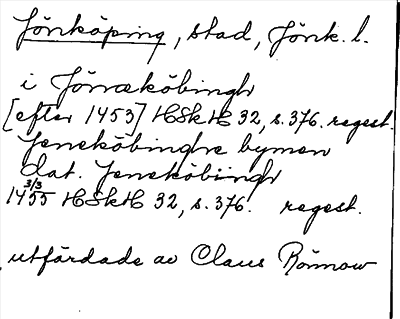 Jönköping, stad, Jönk. l.
i Jönækøbingh
[efter 1453] HSkH 32, s. 376. regest.
Jenekøbinghe bymen
dat. Jenekøbingh
3/3 1455 HSkH 32, s. 376. regest.
utfärdade av Claus Rönnow